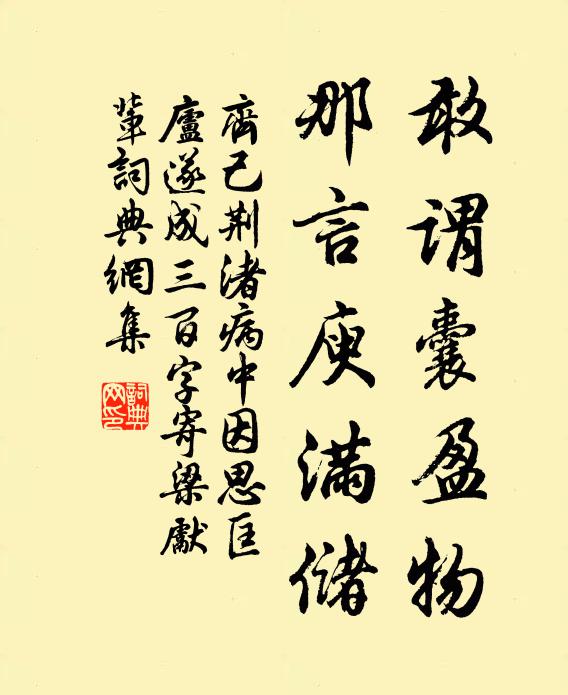 敢謂囊盈物
那言庾滿儲
齊己荆渚病中因思匡
廬遂成三百字寄梁獻
輩詞典網集
詞典網印